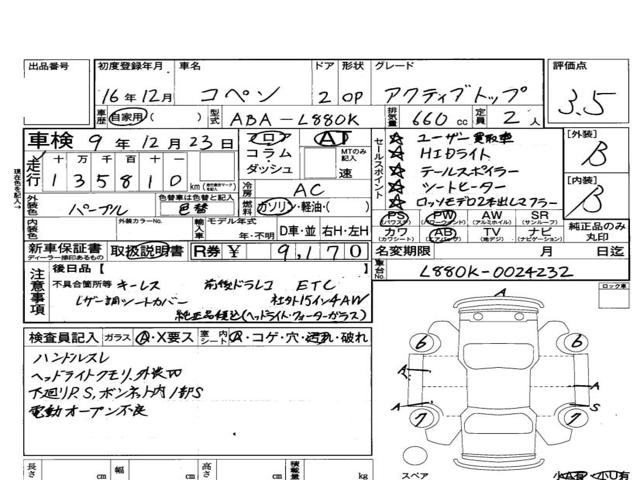 出品番号 初度登録年月 車名 ドア 形状 グレード 評価点
16年12月 コペン 2 OP アクティブトップ 3.5
車歴 自家用( ) 型式 ABA-L880K 排気量 660cc 定員 2人
車検 9年12月23日 フロア AT セールスポイント ☆ ユーザー買取車 [外装]
走行 十万千百十一 コラム MTのみ記入 ☆ HIDライト B
現在色を記入→ 135810km ダッシュ 速 ☆ テールスポイラー
冷房 AC ☆ シートヒーター [内装]
外装色 パープル 色替車は色替と記入 色替 燃料 ガソリン・軽油・( ) ☆ ロッソモデロ2本出しマフラー B
内装色 外装カラーNo. 輸入車 モデル年式 年・不明 D車・並 右H・左H
PS (パワステ) PW (パワーウィンド) AW (アルミホイル) SR (サンルーフ) 純正品のみ丸印
カワ (カワシート) AB (エアバッグ) TV (地デジ) ナビ (ナビゲーション)
新車保証書 ディーラー捺印あるもの 取扱説明書 R券 ¥ 9,170 名変期限 月 日迄
注意事項 後日品[ ] 車台No. L880K-0024232
不具合箇所等 キーレス 前後ドラレコ ETC ロック車
レザー調シートカバー 社外15インチ4AW
検査員記入 ガラス A・X要ス 室内シート A・コゲ・穴・汚れ・破れ
ハンドルスレ
ヘッドライトクモリ、外装凹
下廻りP.S,ボンネット内1部S
電動オープン不良
A
6 6
A A
A S
7 7
スペア 小A有・小U有
長さ cm 幅 cm 高さ cm 積載量 kg